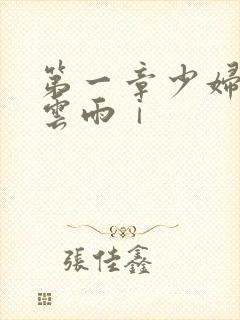 第一章少婦
雲雨丨
張佳鑫